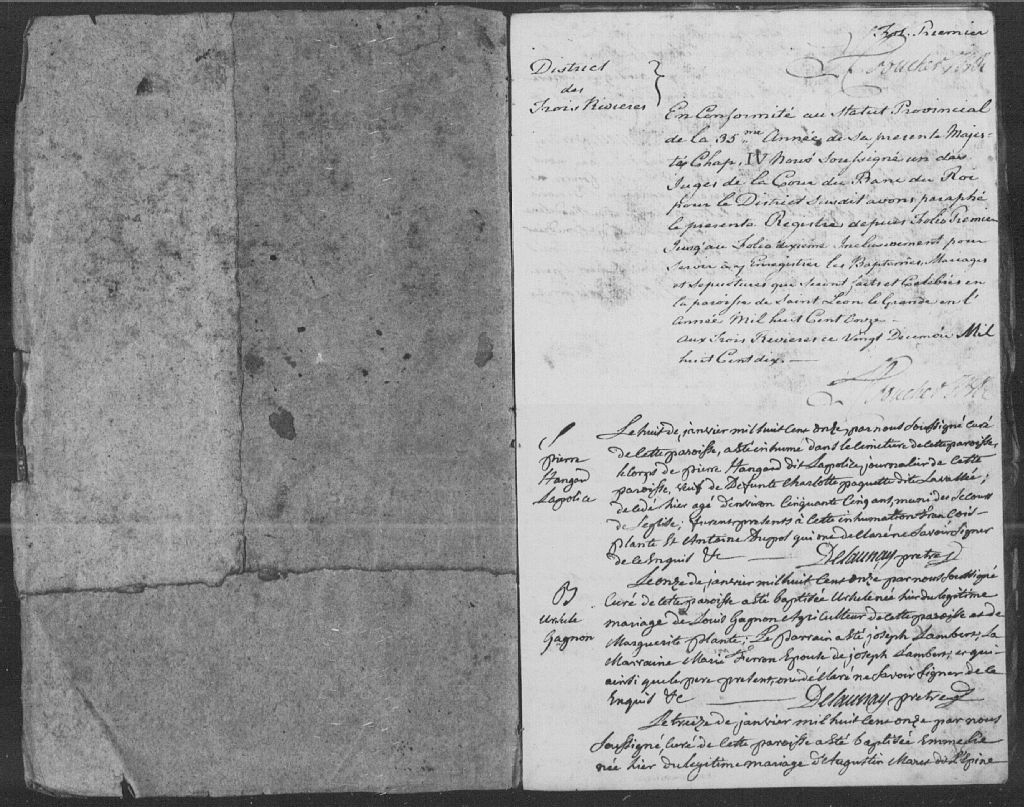 Fol. Premier
District
des
Trois Rivieres
En Conformité au Statut Provincial
de la 35.me Année de Sa presente Majes-
té, Chap. IV Nous Soussigné un des
Juges de la Cour du Banc du Roi
pour le District Susdit avons paraphé
le presente Registre depuis Folio Premier
Jusqu'au Folio dixieme Inclusivement pour
Servir à y Enregistrer les Baptemes, Mariages
et Sepultures qui Seront faits et Celebrés en
la paroisse de Saint Leon le Grande en l'
Année Mil huit Cent Onze —
Aux Trois Rivieres ce Vingt Decembre Mil
huit Cent dix —
S
pierre
Hangard
Lapolice
Le huit de janvier mil huit Cent onze par nous Soussigné Curé
de Cette paroisse, a été inhumé dans le Cimetiere de Cette paroisse,
le Corps de pierre Hangard dit Lapolice, journalier de Cette
paroisse, veuf de Defunte Charlotte paquette dite Lavallée;
decedé hier agé d'environ Cinquante Cinq ans, muni des Secours
de l'eglise; furent presents à Cette inhumation François
plante Et Antoine Dupol qui one declaré ne Savoir Signer
de ce Enquis &c — Delaunay, pretre
B
Ursule
Gagnon
Le onze de janvier mil huit Cent onze par nous Soussigné
Curé de Cette paroisse a été baptisée Ursule née hier du legitime
mariage de Louis Gagnon Agriculteur de Cette paroisse et de
Marguerite plante; Le parrain a été joseph Lambert; La
Marraine Marie Ferron Epouse de joseph Lambert; et qui
ainsi que le pere present, one déclaré ne Savoir Signer de ce
Enquis &c — Delaunay pretre
Le treize de janvier mil huit Cent onze par nous
Soussigné Curé de Cette paroisse a été baptisée Emmelie
née hier du legitime mariage d'Augustin Mares de L'Epine